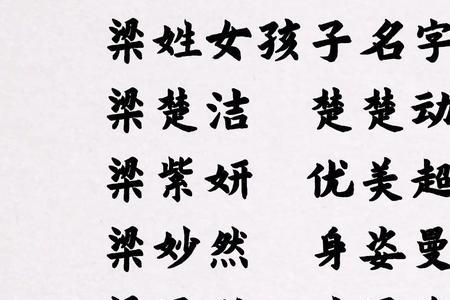 梁姓女孩子名字
梁楚洁 楚楚动
梁紫妍 优美超
梁妙然 身姿曼